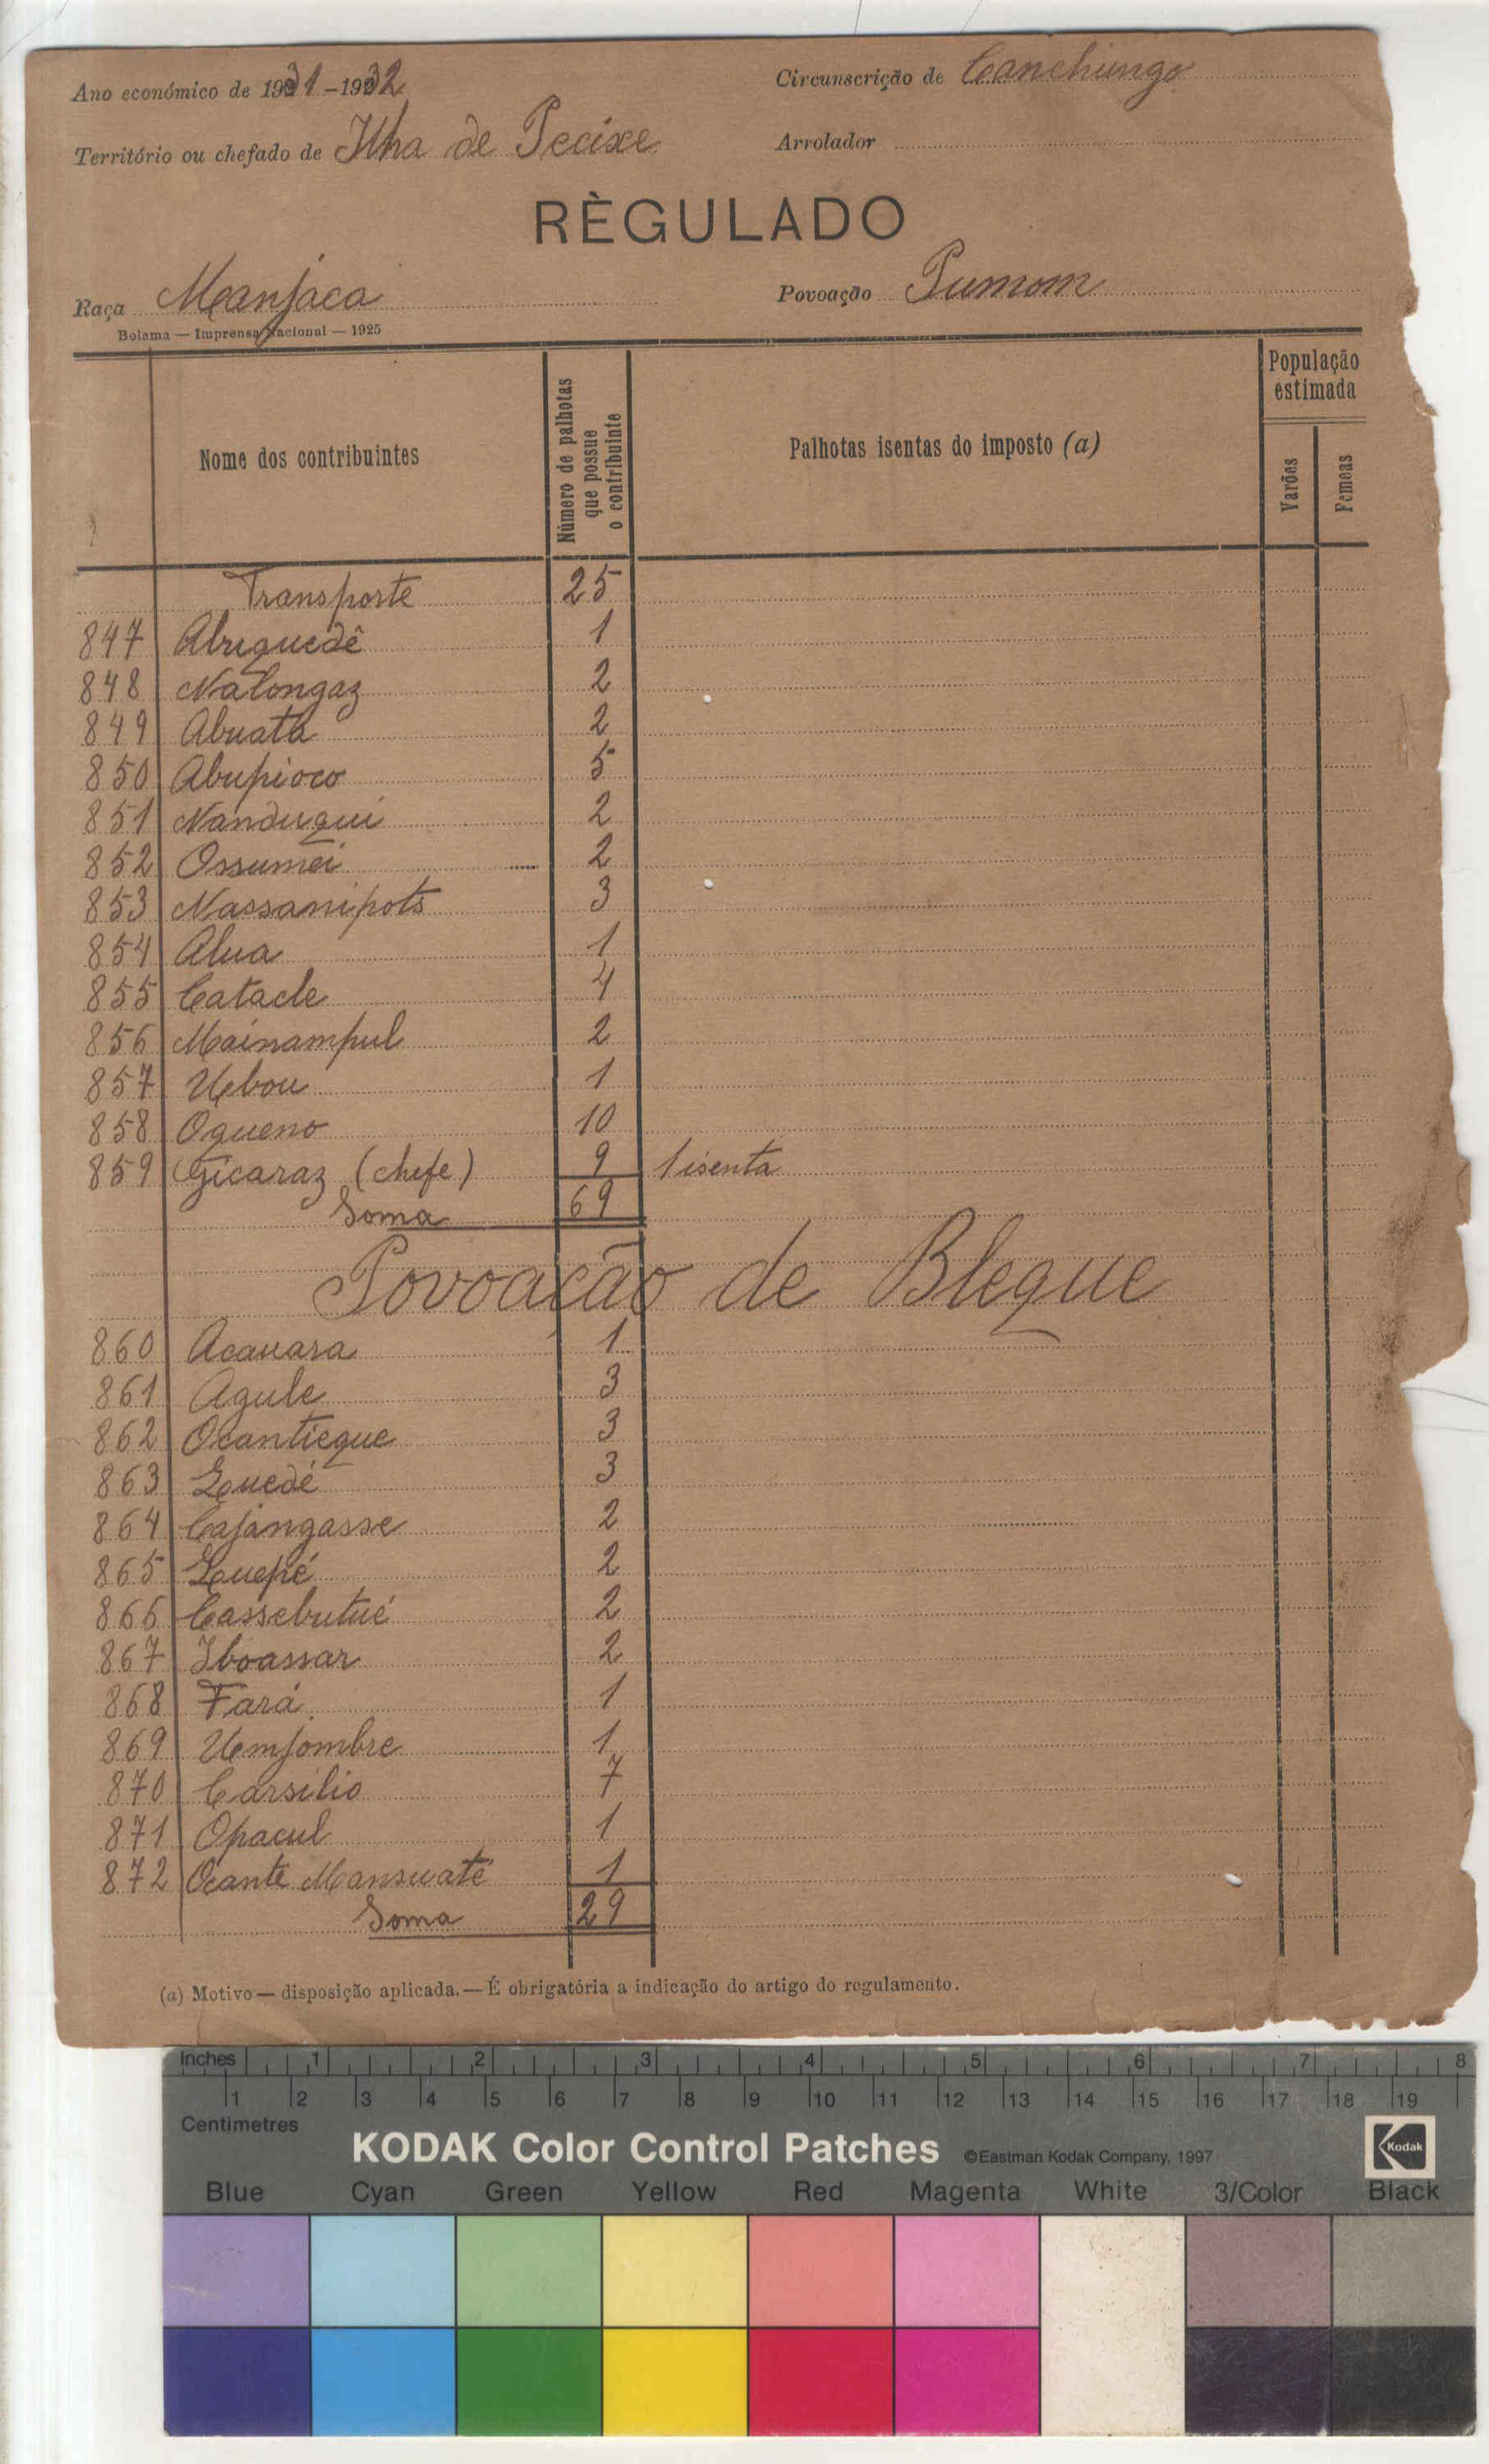 Ano económico de 1931-1932
Circunscrição de Canchungo
Território ou chefado de Ilha de Pecixe
Arrolador
RÈGULADO
Raça Manjaca
Povoação Pumom
Bolama — Imprensa Nacional — 1925
Nome dos contribuintes
Número de palhotas que possue o contribuinte
Palhotas isentas do imposto (a)
População estimada
Varões
Femeas
Transporte 25
847 Abriguedê 1
848 Nalongaz 2
849 Abuata 2
850 Abupioco 5
851 Nanduqui 2
852 Ossumei 2
853 Nassanipots 3
854 Alua 1
855 Catacle 4
856 Mainampul 2
857 Uebou 1
858 Ogueno 10
859 Gicaraz (chefe) 9 1 isenta
Soma 69
Povoação de Bleque
860 Acauara 1
861 Agule 3
862 Ocantieque 3
863 Quedé 3
864 Cajangasse 2
865 Quepé 2
866 Cassebutué 2
867 Iboassar 2
868 Fará 1
869 Uemjombre 1
870 Carsilio 7
871 Opacul 1
872 Ocante Mansuaté 1
Soma 29
(a) Motivo — disposição aplicada. — É obrigatória a indicação do artigo do regulamento.
Inches 1 2 3 4 5 6 7 8
1 2 3 4 5 6 7 8 9 10 11 12 13 14 15 16 17 18 19
Centimetres
KODAK Color Control Patches ©Eastman Kodak Company, 1997 Kodak
Blue Cyan Green Yellow Red Magenta White 3/Color Black